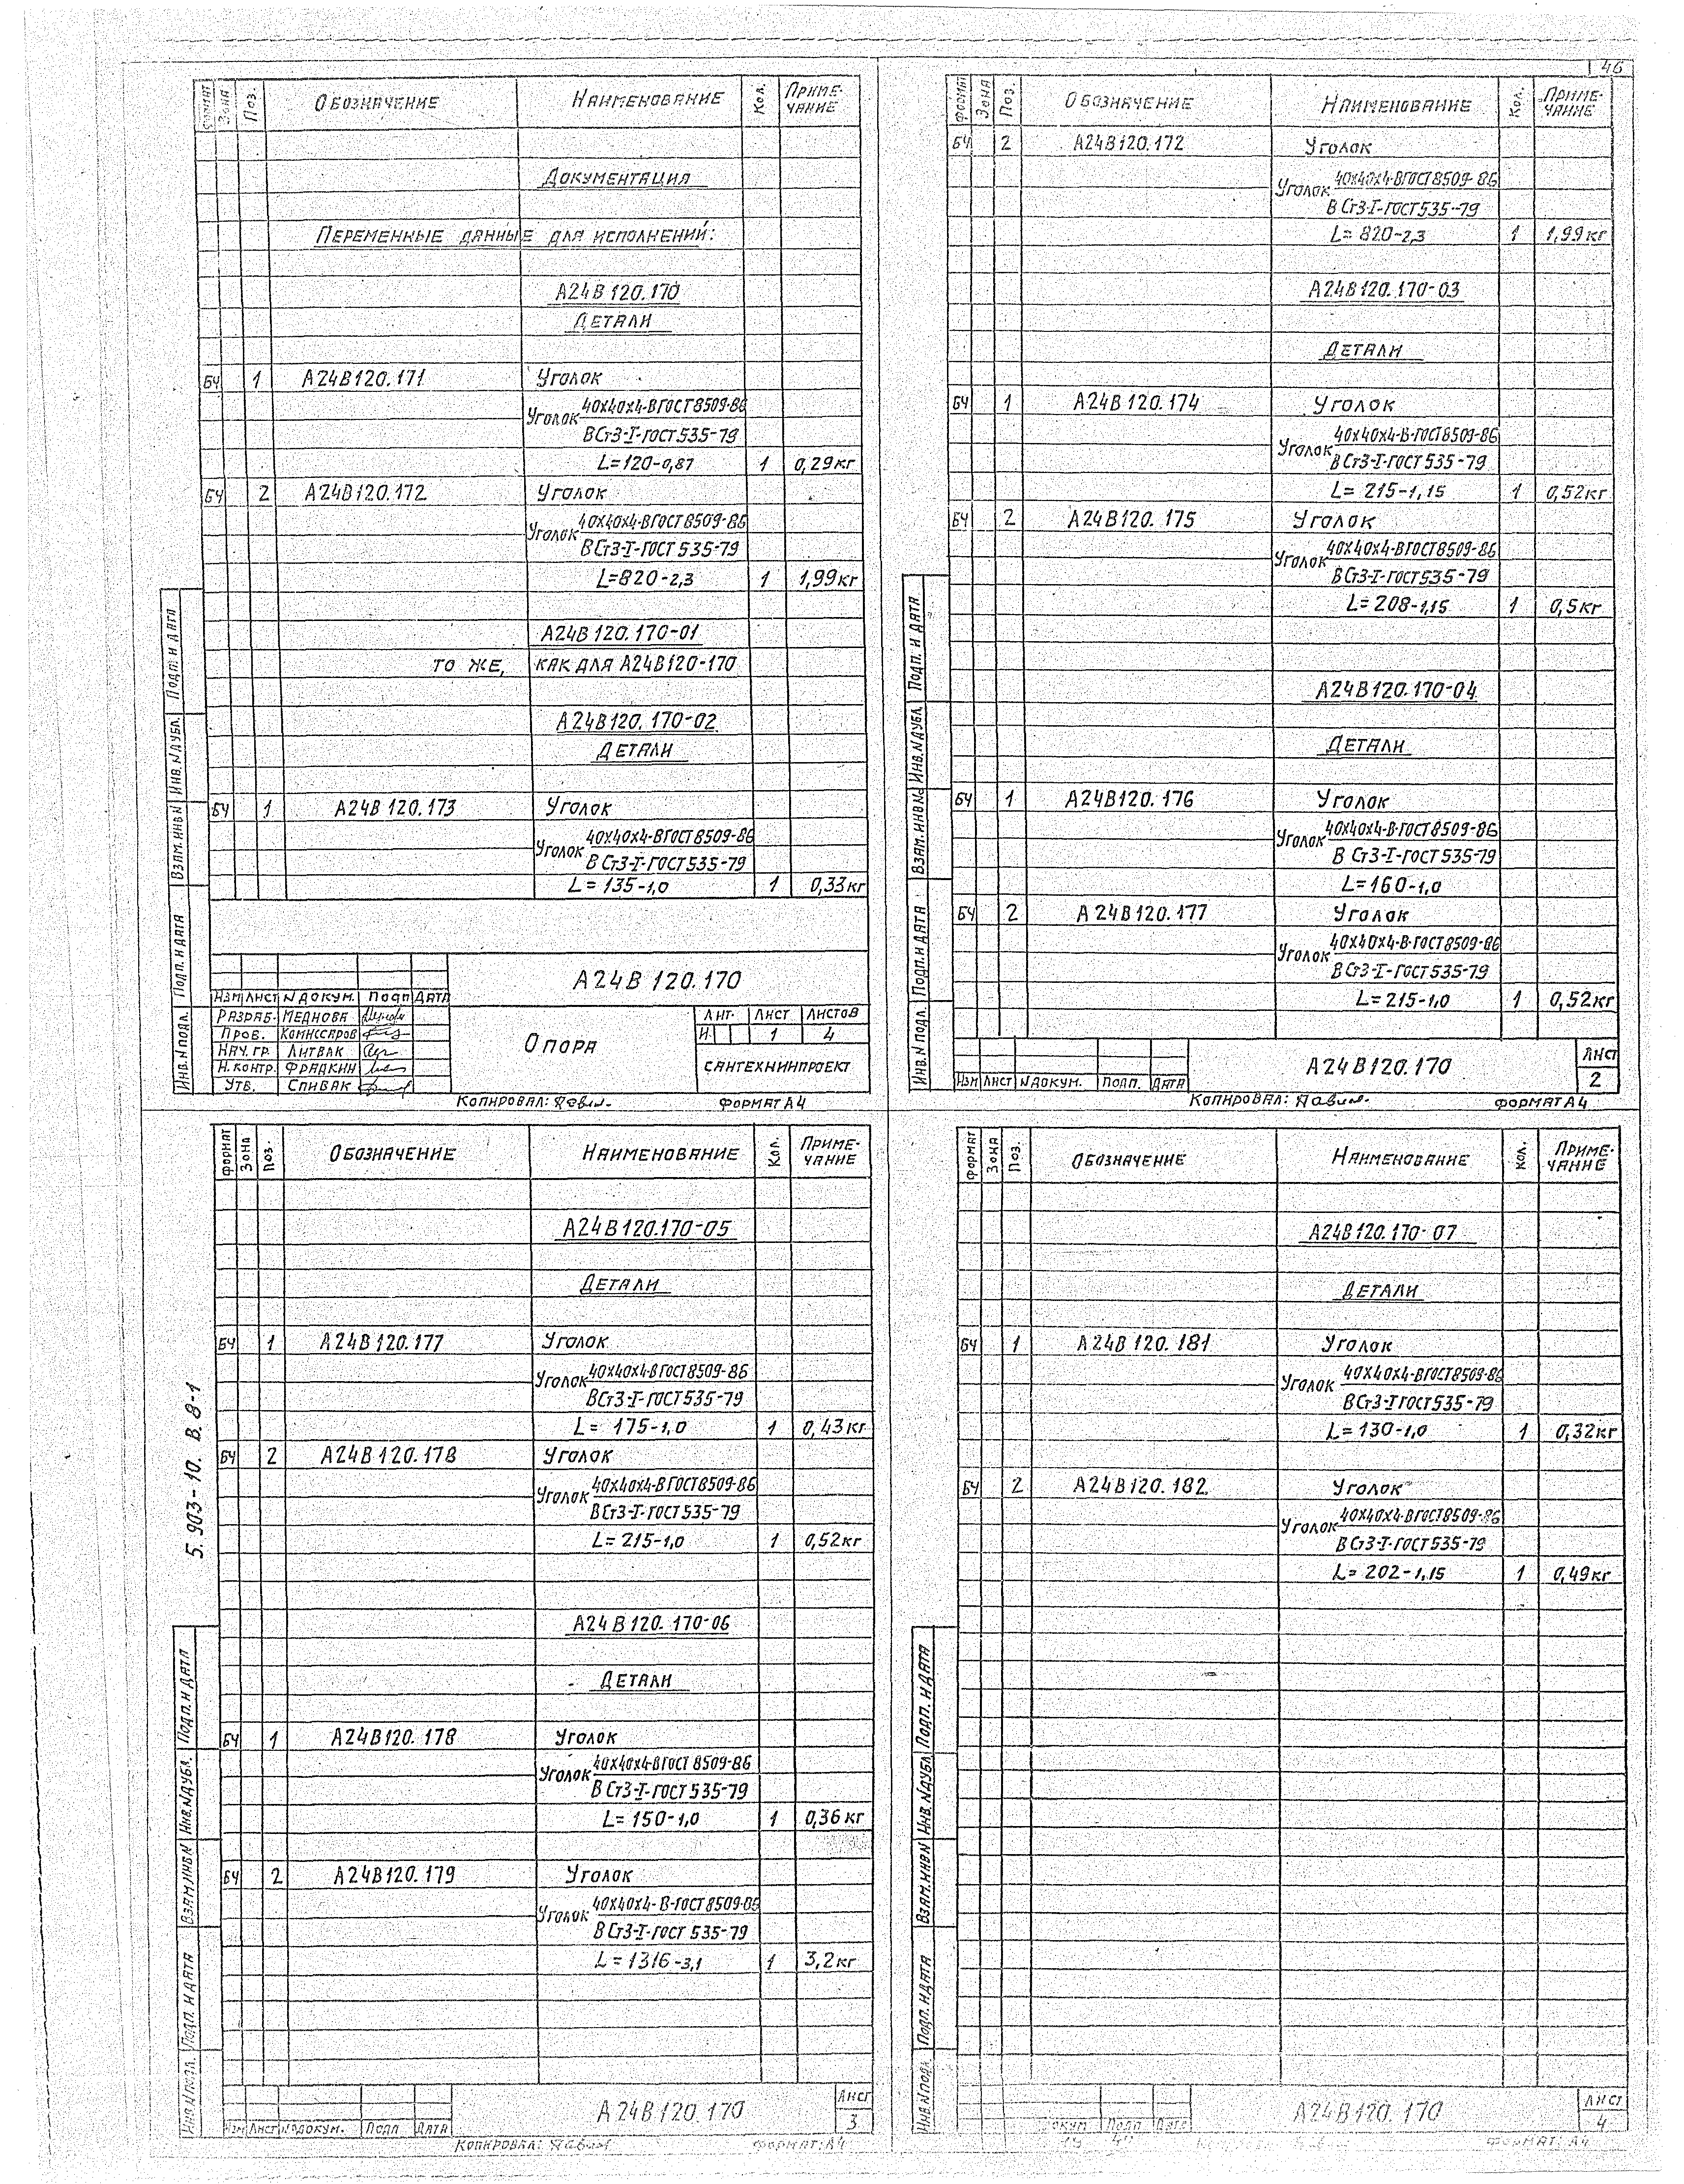 46
ФОРМАТ ЗОНА ПОЗ. ОБОЗНАЧЕНИЕ НАИМЕНОВАНИЕ КОЛ. ПРИМЕ-
ЧАНИЕ
ДОКУМЕНТАЦИЯ
ПЕРЕМЕННЫЕ ДАННЫЕ ДЛЯ ИСПОЛНЕНИЙ:
А24В 120.170
ДЕТАЛИ
БЧ 1 А24В120.171 УГОЛОК
УГОЛОК 40Х40Х4-ВГОСТ8509-86
ВСт3-I-ГОСТ535-79
L=120-0,87 1 0,29кг
БЧ 2 А24В120.172 УГОЛОК
УГОЛОК 40Х40Х4-ВГОСТ8509-86
ВСт3-I-ГОСТ535-79
L=820-2,3 1 1,99кг
А24В120.170-01
ТО ЖЕ, КАК ДЛЯ А24В120-170
А24В120.170-02
ДЕТАЛИ
БЧ 1 А24В 120.173 УГОЛОК
УГОЛОК 40Х40Х4-ВГОСТ8509-86
В Ст3-I-ГОСТ535-79
L=135-1,0 1 0,33кг
А24В 120.170
ИЗМ ЛИСТ №ДОКУМ. ПОДП ДАТА
РАЗРАБ. МЕДНОВА
ПРОВ. КОМИССАРОВ
НАЧ. ГР. ЛИТВАК
Н.КОНТР. ФРАДКИН
УТВ. СПИВАК
ОПОРА
ЛИТ. ЛИСТ ЛИСТОВ
И. 1 4
САНТЕХНИИПРОЕКТ
КОПИРОВАЛ: ФОРМАТ А4
ПОДП. И ДАТА
ИНВ.№ДУБЛ.
ВЗАМ.ИНВ№
ПОДП. И ДАТА
ИНВ.№ПОДЛ.
ФОРМАТ ЗОНА ПОЗ. ОБОЗНАЧЕНИЕ НАИМЕНОВАНИЕ КОЛ. ПРИМЕ-
ЧАНИЕ
БЧ 2 А24В120.172 УГОЛОК
УГОЛОК 40Х40Х4-ВГОСТ8509-86
В Ст3-I-ГОСТ535-79
L=820-2,3 1 1,99кг
А24В120.170-03
ДЕТАЛИ
БЧ 1 А24В120.174 УГОЛОК
УГОЛОК 40Х40Х4-В-ГОСТ8509-86
В Ст3-I-ГОСТ535-79
L=215-1,15 1 0,52кг
БЧ 2 А24В120.175 УГОЛОК
УГОЛОК 40Х40Х4-ВГОСТ8509-86
ВСт3-I-ГОСТ535-79
L=208-1,15 1 0,5кг
А24В120.170-04
ДЕТАЛИ
БЧ 1 А24В120.176 УГОЛОК
УГОЛОК 40Х40Х4-В-ГОСТ8509-86
В Ст3-I-ГОСТ535-79
L=160-1,0
БЧ 2 А24В120.177 УГОЛОК
УГОЛОК 40Х40Х4-В-ГОСТ8509-86
ВСт3-I-ГОСТ535-79
L=215-1,0 1 0,52кг
ИЗМ ЛИСТ №ДОКУМ. ПОДП. ДАТА А24В120.170 ЛИСТ
2
КОПИРОВАЛ: ФОРМАТ А4
ПОДП. И ДАТА
ИНВ.№ДУБЛ.
ВЗАМ.ИНВ№
ПОДП. И ДАТА
ИНВ.№ПОДЛ.
5.903-10. В.8-1
ФОРМАТ ЗОНА ПОЗ. ОБОЗНАЧЕНИЕ НАИМЕНОВАНИЕ КОЛ. ПРИМЕ-
ЧАНИЕ
А24В120.170-05
ДЕТАЛИ
БЧ 1 А24В120.177 УГОЛОК
УГОЛОК 40Х40Х4-ВГОСТ8509-86
ВСт3-I-ГОСТ535-79
L=175-1,0 1 0,43кг
БЧ 2 А24В120.178 УГОЛОК
УГОЛОК 40Х40Х4-ВГОСТ8509-86
ВСт3-I-ГОСТ535-79
L=215-1,0 1 0,52кг
А24В120.170-06
ДЕТАЛИ
БЧ 1 А24В120.178 УГОЛОК
УГОЛОК 40Х40Х4-ВГОСТ 8509-86
В Ст3-I-ГОСТ535-79
L=150-1,0 1 0,36кг
БЧ 2 А24В120.179 УГОЛОК
УГОЛОК 40Х40Х4-В-ГОСТ8509-86
В Ст3-I-ГОСТ 535-79
L=1316-3,1 1 3,2кг
ИЗМ ЛИСТ №ДОКУМ. ПОДП ДАТА А24В120.170 ЛИСТ
3
КОПИРОВАЛ: ФОРМАТ: А4
ПОДП. И ДАТА
ИНВ.№ДУБЛ.
ВЗАМ.ИНВ№
ПОДП. И ДАТА
ИНВ.№ПОДЛ.
ФОРМАТ ЗОНА ПОЗ. ОБОЗНАЧЕНИЕ НАИМЕНОВАНИЕ КОЛ. ПРИМЕ-
ЧАНИЕ
А24В120.170-07
ДЕТАЛИ
БЧ 1 А24В120.181 УГОЛОК
УГОЛОК 40Х40Х4-ВГОСТ8509-86
ВСт3-I-ГОСТ535-79
L=130-1,0 1 0,32кг
БЧ 2 А24В120.182 УГОЛОК
УГОЛОК 40Х40Х4-ВГОСТ8509-86
В Ст3-I-ГОСТ535-79
L=202-1,15 1 0,49кг
ДОКУМ ПОДП ДАТА А24В120.170 ЛИСТ
4
ФОРМАТ: А4
ПОДП. И ДАТА
ИНВ.№ДУБЛ
ВЗАМ.ИНВ№
ПОДП. И ДАТА
ИНВ.№ПОДЛ